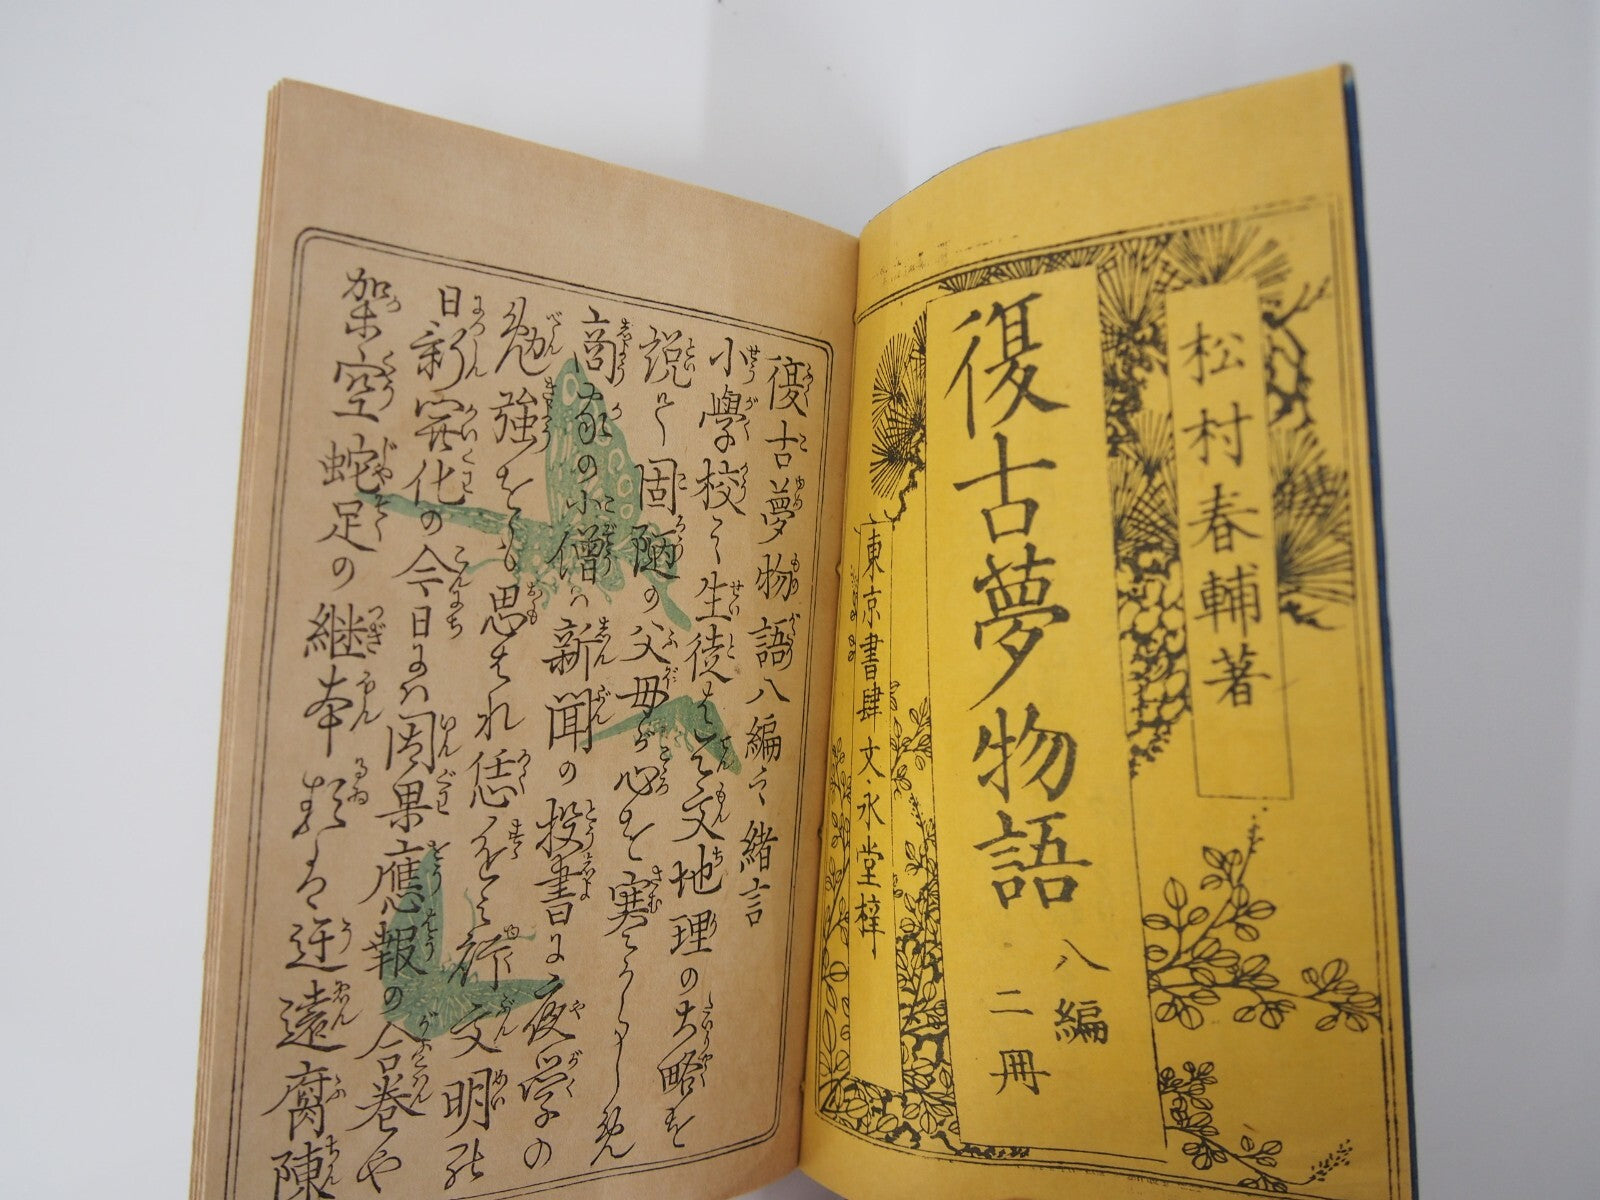 松村春輔著
復古夢物語
八編
二冊
東京書肆 文永堂梓
復古夢物語八編之緒言
小學校の生徒はして文地理の大略を
説て固陋の父母が心を寒からしめ
商家の小僧ハ新聞の投書に夜学の
勉強をも思はれ恁を
文明の
日新開化の今日にハ因果應報の合巻や
架空蛇足の継本類は迂遠腐陳